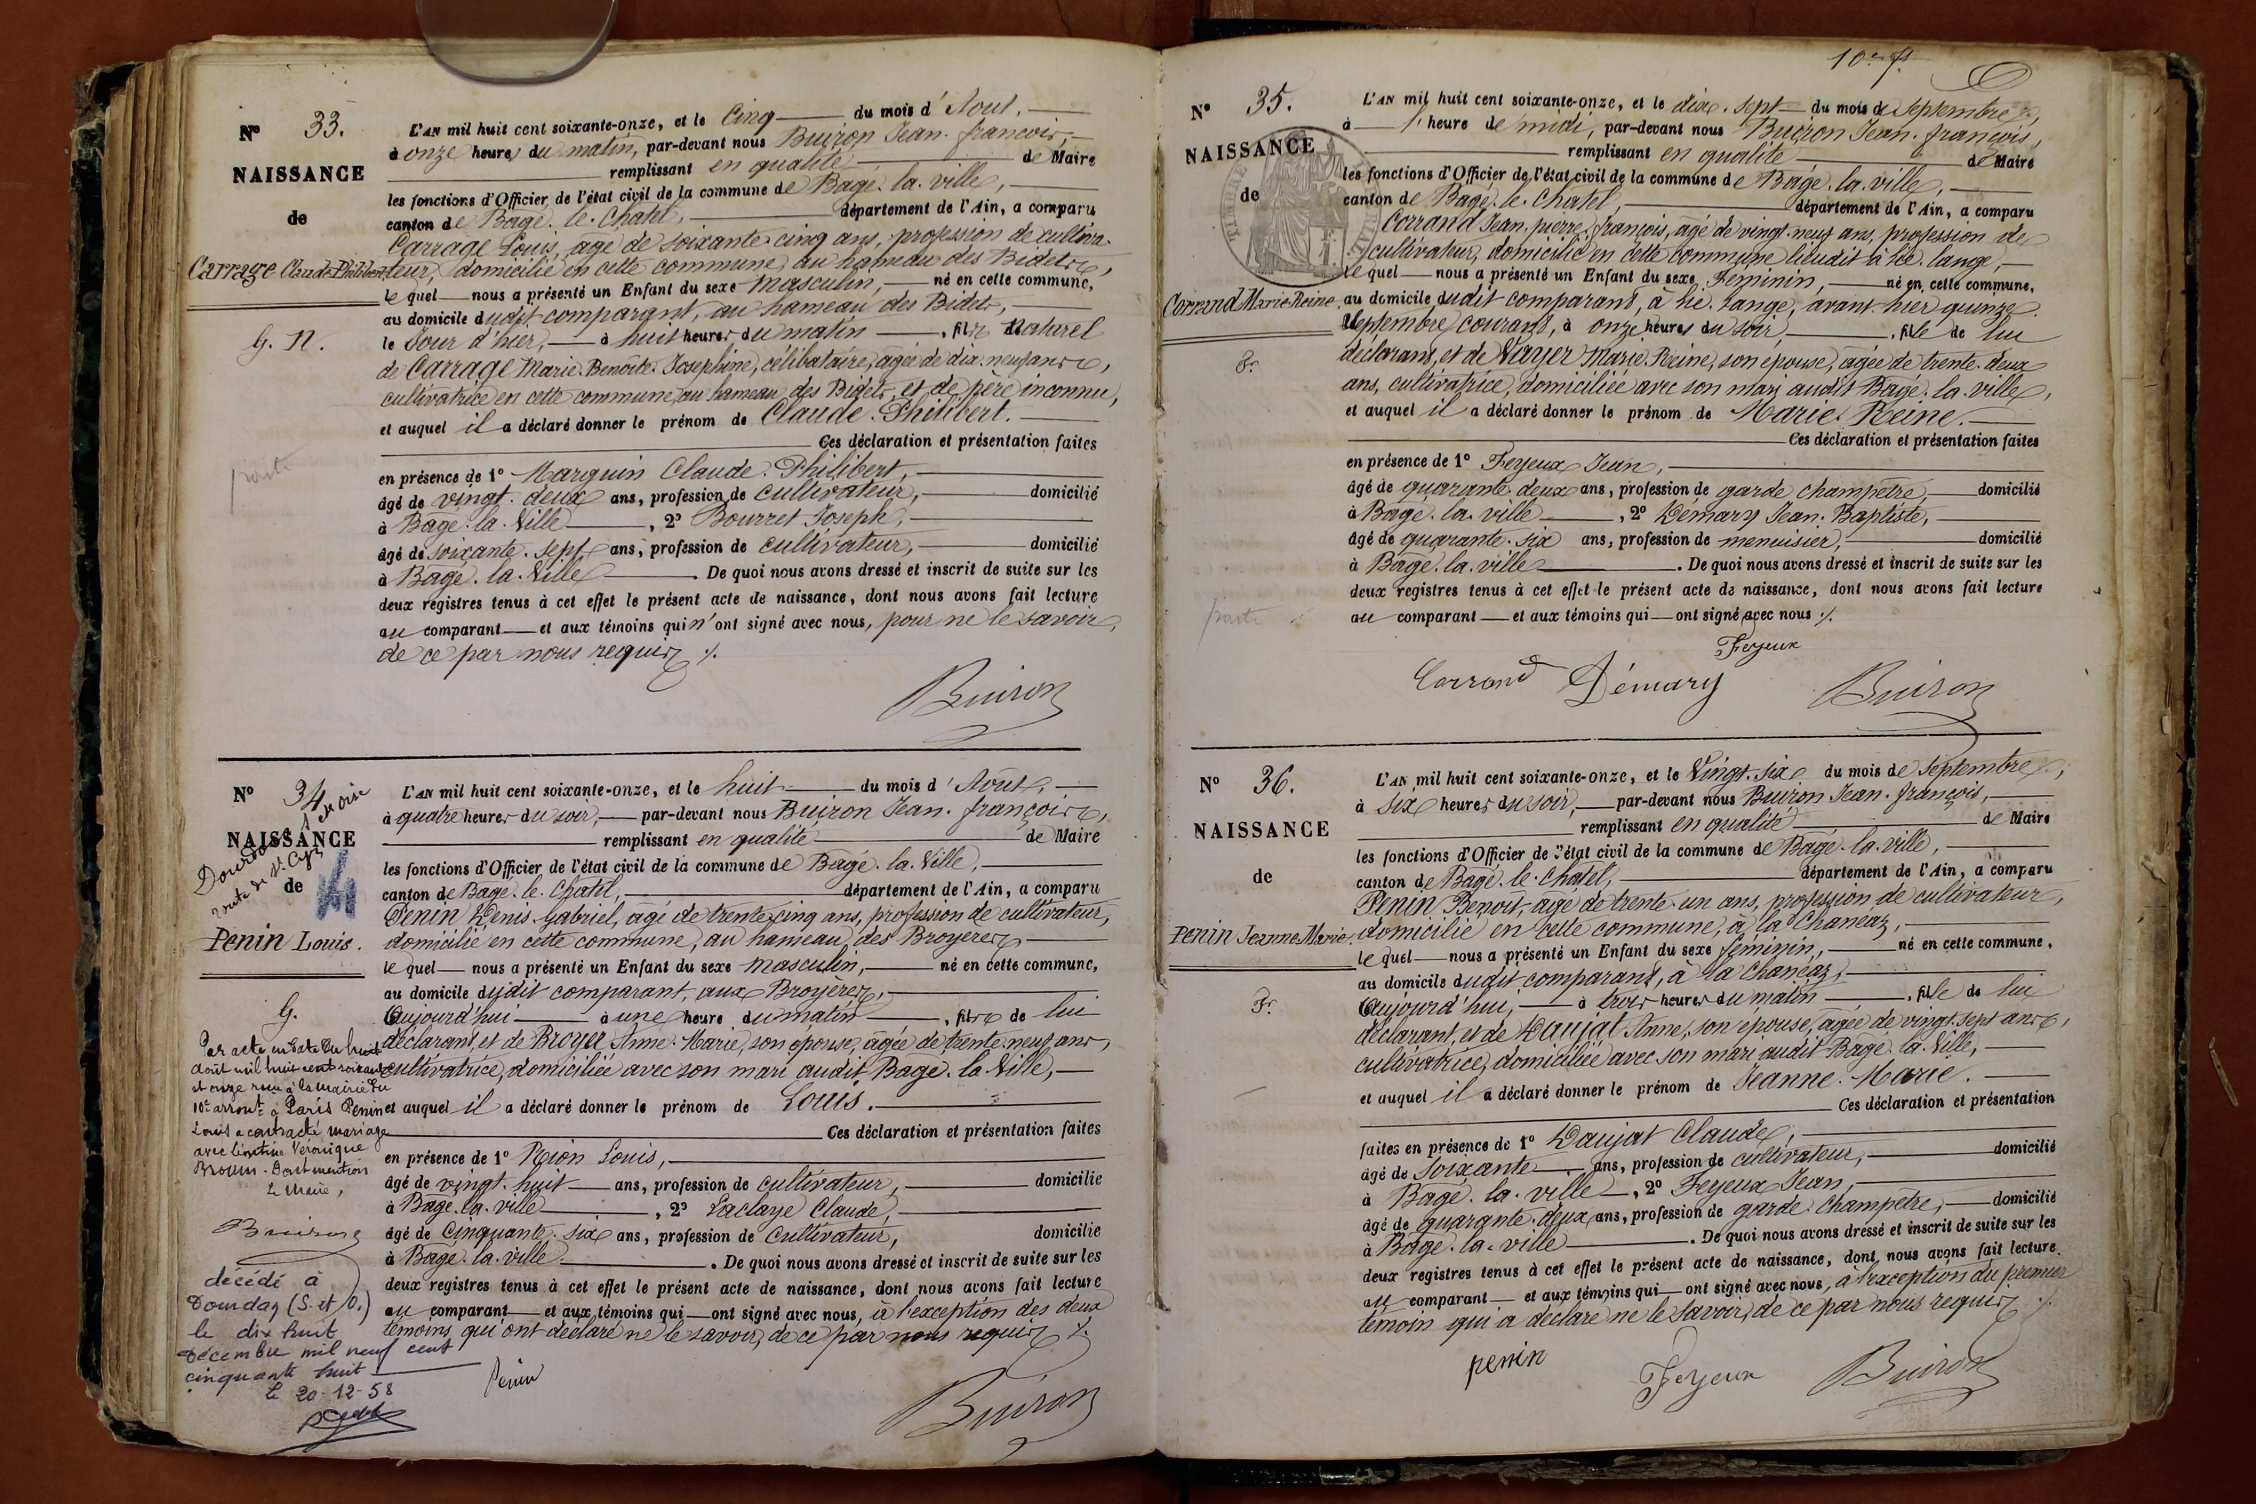 N° 33.
NAISSANCE
de
Carrage Claude Philibert
G. N.
L'AN mil huit cent soixante-onze, et le Cinq du mois d'Aout.
à onze heures du matin, par-devant nous Buiron Jean-françois,
remplissant en qualité de Maire
les fonctions d'Officier de l'état civil de la commune de Bagé-la-ville,
canton de Bagé-le-Chatel, département de l'Ain, a comparu
Carrage Louis, age de soixante-cinq ans, profession de cultiva-
teur, domicilié en cette commune, au hameau des Bidets,
le quel nous a présenté un Enfant du sexe Masculin, né en cette commune,
au domicile dudit comparant, au hameau des Bidets,
le Jour d'hier, à huit heures du matin, fils naturel
de Carrage Marie-Benoîte-Josephine, célibataire, agée de dix-neuf ans,
cultivatrice en cette commune au hameau des Bidets, et de père inconnu,
et auquel il a déclaré donner le prénom de Claude-Philibert.
Ces déclaration et présentation faites
en présence de 1° Marguin Claude-Philibert,
âgé de vingt-deux ans, profession de cultivateur, domicilié
à Bagé-la-Ville, 2° Bourret Joseph,
âgé de soixante-sept ans, profession de cultivateur, domicilié
à Bagé-la-Ville. De quoi nous avons dressé et inscrit de suite sur les
deux registres tenus à cet effet le présent acte de naissance, dont nous avons fait lecture
au comparant et aux témoins qui n'ont signé avec nous, pour ne le savoir,
de ce par nous requis ./.
Buiron
N° 34
NAISSANCE
de
Dourdan S. et Oise
route de St. Cyr
Penin Louis.
G.
Par acte en date du huit
août mil huit cent soixante
et onze reçu à la mairie du
10e arront à Paris Penin
Louis a contracté mariage
avec Léontine Véronique
Dont mention
Le Maire,
Buiron
décédé à
Dourdan (S. et O.)
le dix huit
décembre mil neuf cent
cinquante huit
le 20-12-58
L'AN mil huit cent soixante-onze, et le huit du mois d'Août,
à quatre heures du soir, par-devant nous Buiron Jean-françois,
remplissant en qualité de Maire
les fonctions d'Officier de l'état civil de la commune de Bagé-la-Ville,
canton de Bagé-le-Chatel, département de l'Ain, a comparu
Penin Denis-Gabriel, âgé de trente-cinq ans, profession de cultivateur,
domicilié en cette commune, au hameau des Broyeres,
le quel nous a présenté un Enfant du sexe masculin, né en cette commune,
au domicile dudit comparant, aux Broyères,
Aujourd'hui à une heure du matin, fils de lui
déclarant, et de Broyer Anne-Marie, son épouse, âgée de trente-neuf ans,
cultivatrice, domiciliée avec son mari audit Bagé-la-Ville,
et auquel il a déclaré donner le prénom de Louis.
Ces déclaration et présentation faites
en présence de 1° Pion Louis,
âgé de vingt-huit ans, profession de cultivateur, domicilié
à Bagé-la-ville, 2° Paclaye Claude,
âgé de Cinquante-six ans, profession de Cultivateur, domicilié
à Bagé-la-ville. De quoi nous avons dressé et inscrit de suite sur les
deux registres tenus à cet effet le présent acte de naissance, dont nous avons fait lecture
au comparant et aux témoins qui ont signé avec nous, à l'exception des deux
témoins qui ont déclaré ne le savoir, de ce par nous requis ./.
Penin
Buiron
N° 35.
NAISSANCE
de
Corrand Marie-Reine
Fr.
L'AN mil huit cent soixante-onze, et le dix-sept du mois de Septembre,
à 1' heure de midi, par-devant nous Buiron Jean-françois,
remplissant en qualité de Maire
les fonctions d'Officier de l'état civil de la commune de Bagé-la-ville,
canton de Bagé-le-Chatel, département de l'Ain, a comparu
Corrand Jean-pierre-françois, âgé de vingt-neuf ans, profession de
cultivateur, domicilié en cette commune lieudit à hé-lange,
le quel nous a présenté un Enfant du sexe Feminin, né en cette commune,
au domicile dudit comparant, à hé-lange, avant-hier quinze
Septembre courant, à onze heures du soir, fille de lui
déclarant, et de Vayer Marie-Reine, son épouse, âgée de trente-deux
ans, cultivatrice, domiciliée avec son mari audit Bagé-la-ville,
et auquel il a déclaré donner le prénom de Marie-Reine.
Ces déclaration et présentation faites
en présence de 1° Feyeux Jean,
âgé de quarante-deux ans, profession de garde champêtre, domicilié
à Bagé-la-ville, 2° Démary Jean-Baptiste,
âgé de quarante-six ans, profession de menuisier, domicilié
à Bagé-la-ville. De quoi nous avons dressé et inscrit de suite sur les
deux registres tenus à cet effet le présent acte de naissance, dont nous avons fait lecture
au comparant et aux témoins qui ont signé avec nous ./.
Feyeux
Corrand Démary Buiron
N° 36.
NAISSANCE
de
Penin Jeanne Marie.
Fr.
L'AN mil huit cent soixante-onze, et le Vingt-six du mois de Septembre,
à six heures du soir, par-devant nous Buiron Jean-françois,
remplissant en qualité de Maire
les fonctions d'Officier de l'état civil de la commune de Bagé-la-ville,
canton de Bagé-le-Chatel, département de l'Ain, a comparu
Penin Benoit, âgé de trente-un ans, profession de cultivateur,
domicilié en cette commune, à la Chaneaz,
le quel nous a présenté un Enfant du sexe féminin, né en cette commune,
au domicile dudit comparant, à la Chaneaz,
Aujourd'hui, à trois heures du matin, fille de lui
déclarant, et de Daujat Anne, son épouse, âgée de vingt-sept ans,
cultivatrice, domiciliée avec son mari audit Bagé-la-Ville,
et auquel il a déclaré donner le prénom de Jeanne-Marie.
Ces déclaration et présentation
faites en présence de 1° Daujat Claude,
âgé de Soixante ans, profession de cultivateur, domicilié
à Bagé-la-ville, 2° Feyeux Jean,
âgé de quarante-deux ans, profession de garde-champêtre, domicilié
à Bagé-la-ville. De quoi nous avons dressé et inscrit de suite sur les
deux registres tenus à cet effet le présent acte de naissance, dont nous avons fait lecture
au comparant et aux témoins qui ont signé avec nous, à l'exception du premier
témoin qui a déclaré ne le savoir, de ce par nous requis ./.
penin Feyeux Buiron